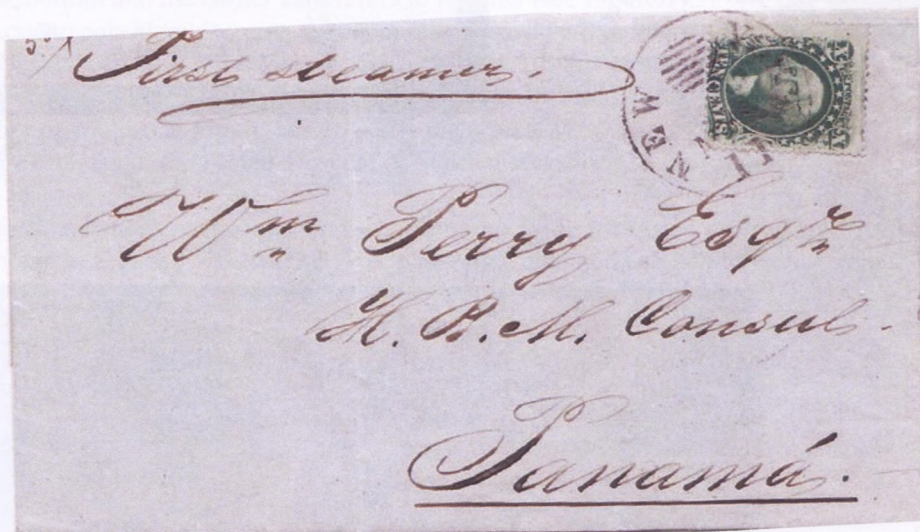 First steamer.
NEW
Wm Perry Esqr
H. B. M. Consul.
Panamá.